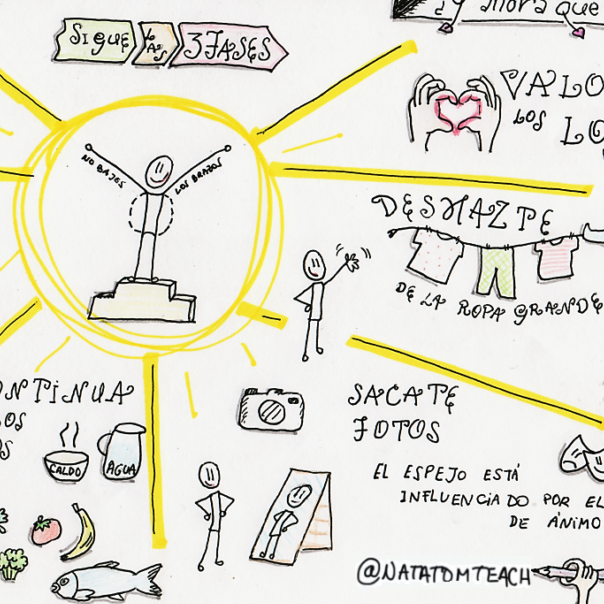 Ahora que
SIGUE LAS 3 FASES
VALO
LOS LO
NO BAJES LOS BRAZOS
DESHAZTE
DE LA ROPA GRANDE
ONTINUA
OS
OS
CALDO
AGUA
SACATE
FOTOS
EL ESPEJO ESTÁ
INFLUENCIADO POR EL
DE ÁNIMO
@NATATDMTEACH